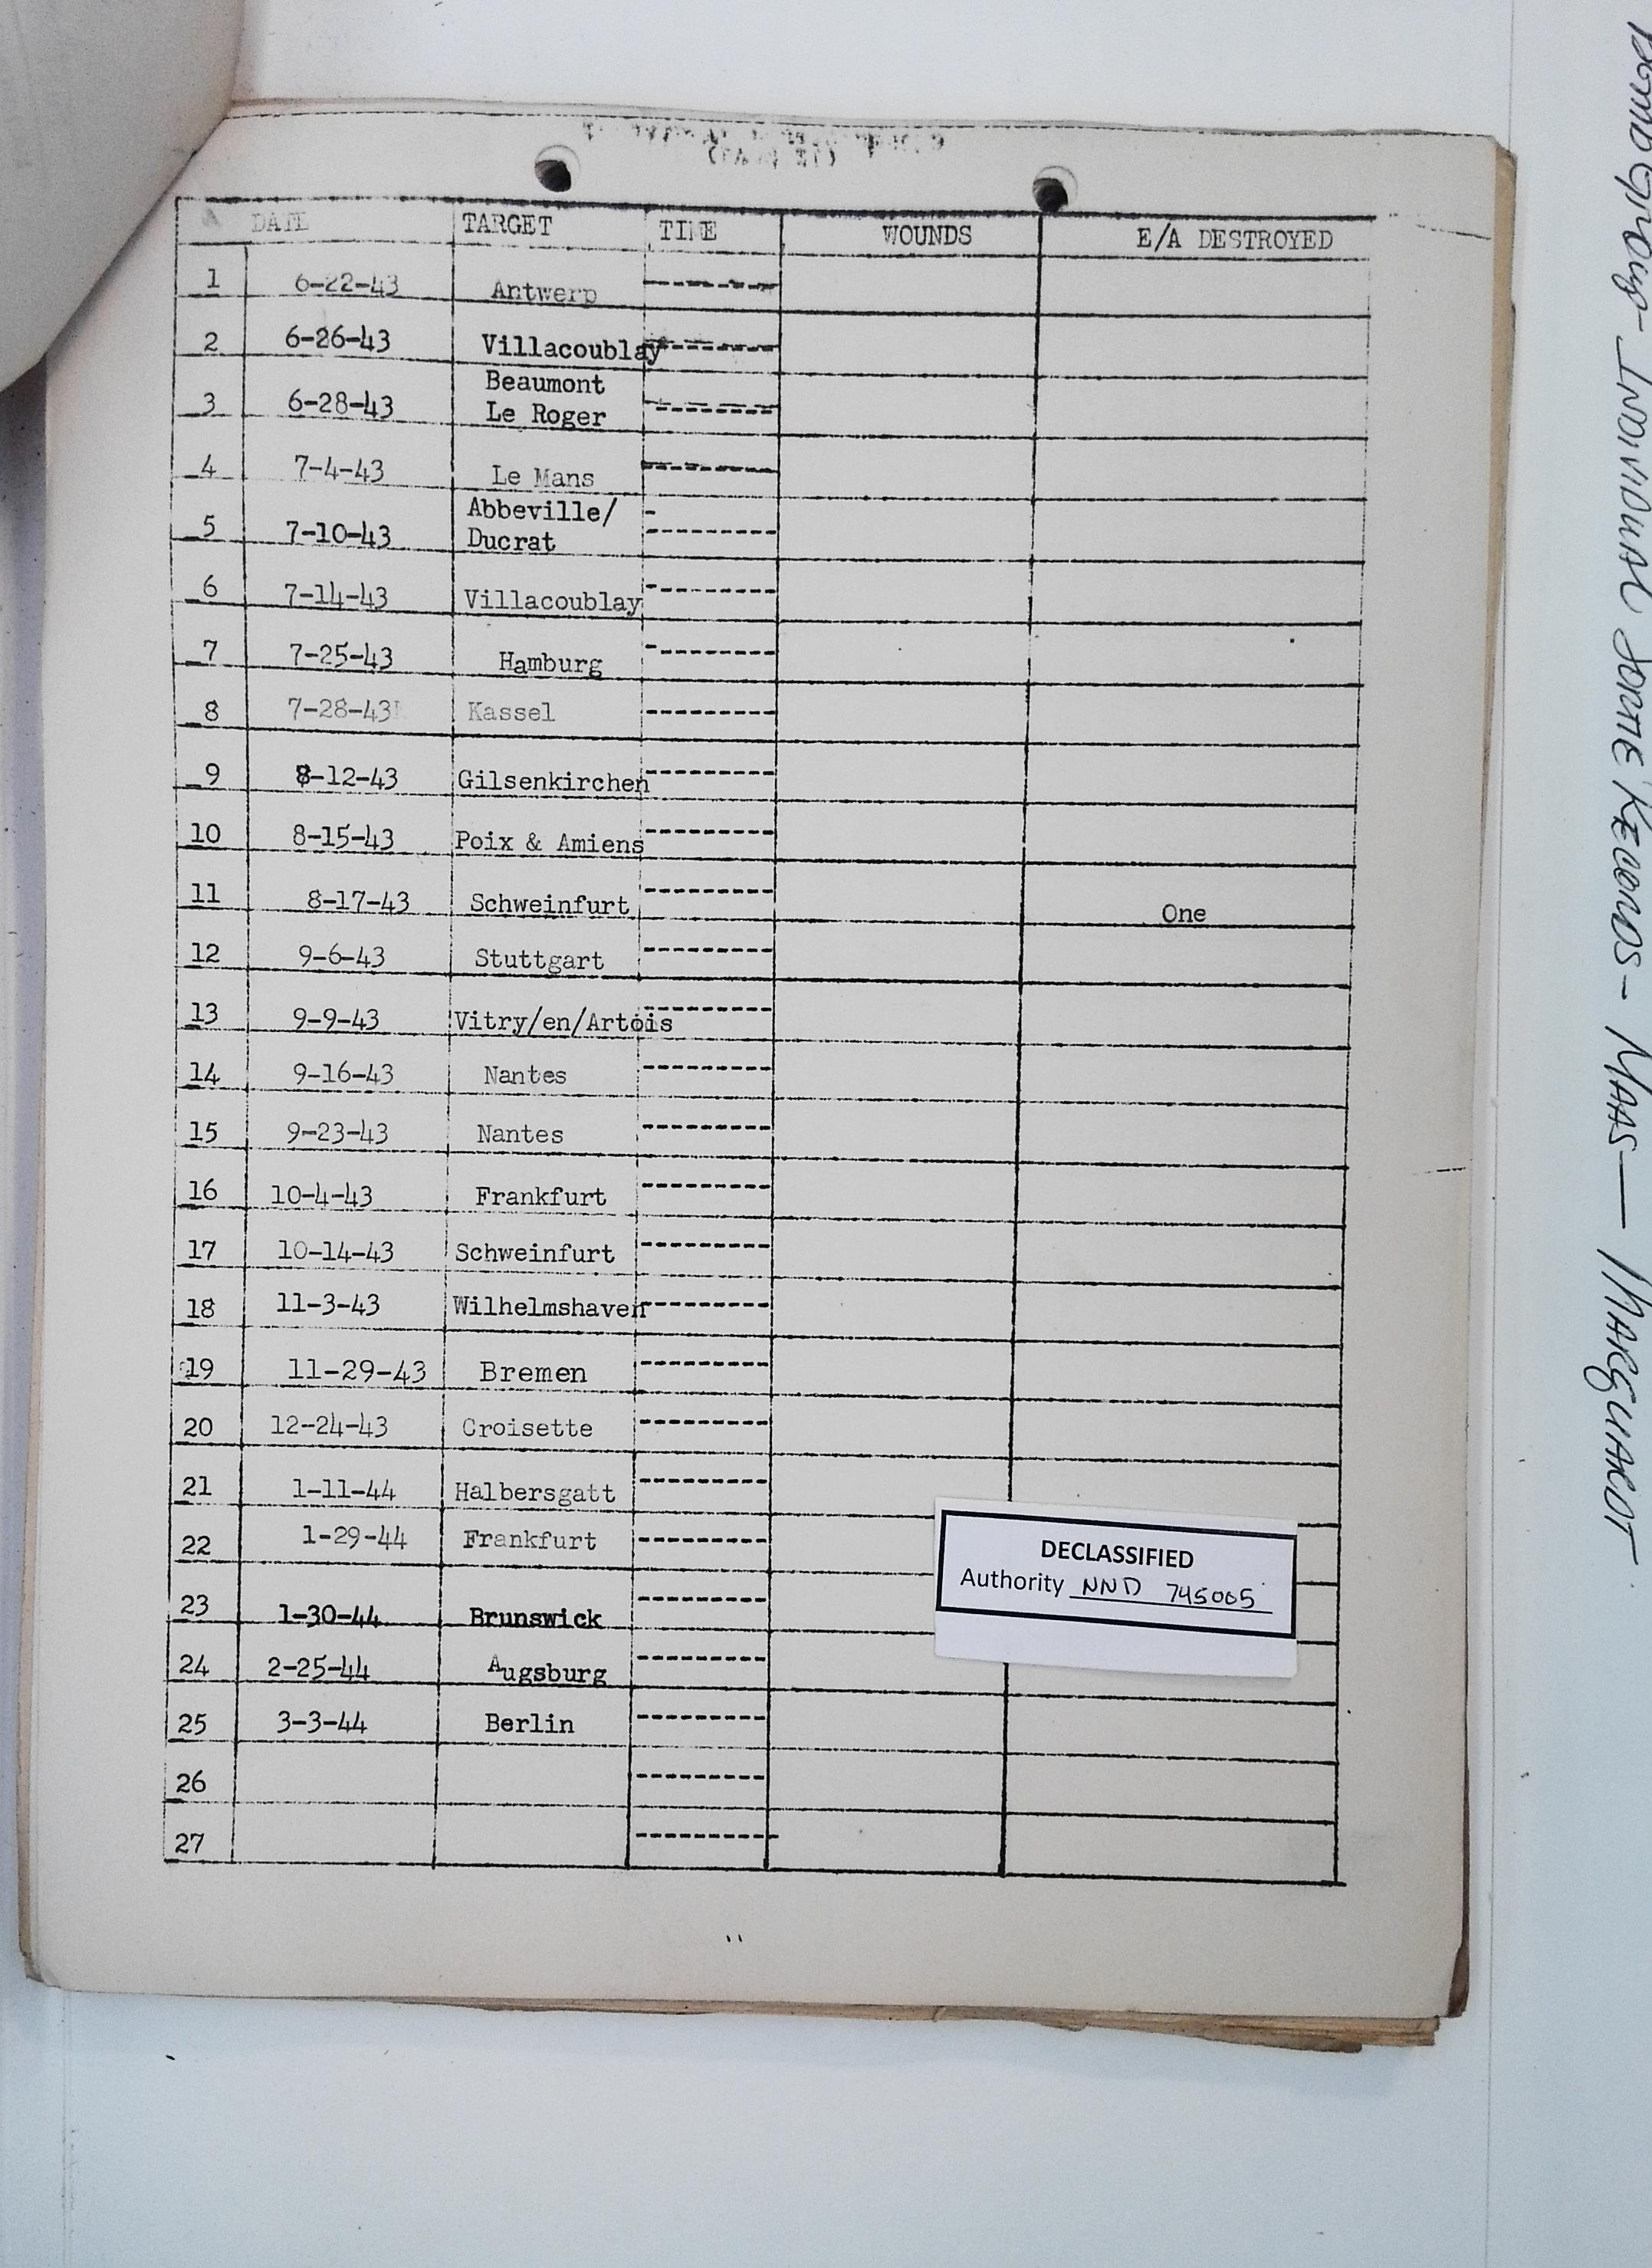 DATE TARGET TIME WOUNDS E/A DESTROYED
1 6-22-43 Antwerp ---------
2 6-26-43 Villacoublay ---------
3 6-28-43 Beaumont
Le Roger ---------
4 7-4-43 Le Mans ---------
5 7-10-43 Abbeville/
Ducrat ---------
6 7-14-43 Villacoublay ---------
7 7-25-43 Hamburg ---------
8 7-28-43 Kassel ---------
9 8-12-43 Gilsenkirchen ---------
10 8-15-43 Poix & Amiens ---------
11 8-17-43 Schweinfurt --------- One
12 9-6-43 Stuttgart ---------
13 9-9-43 Vitry/en/Artois ---------
14 9-16-43 Nantes ---------
15 9-23-43 Nantes ---------
16 10-4-43 Frankfurt ---------
17 10-14-43 Schweinfurt ---------
18 11-3-43 Wilhelmshaven ---------
19 11-29-43 Bremen ---------
20 12-24-43 Croisette ---------
21 1-11-44 Halbersgatt ---------
22 1-29-44 Frankfurt ---------
23 1-30-44 Brunswick ---------
24 2-25-44 Augsburg ---------
25 3-3-44 Berlin ---------
26 ---------
27 ---------
DECLASSIFIED
Authority NND 745005
Bomb Group - Individual Sortie Records - Maas — Marguardt